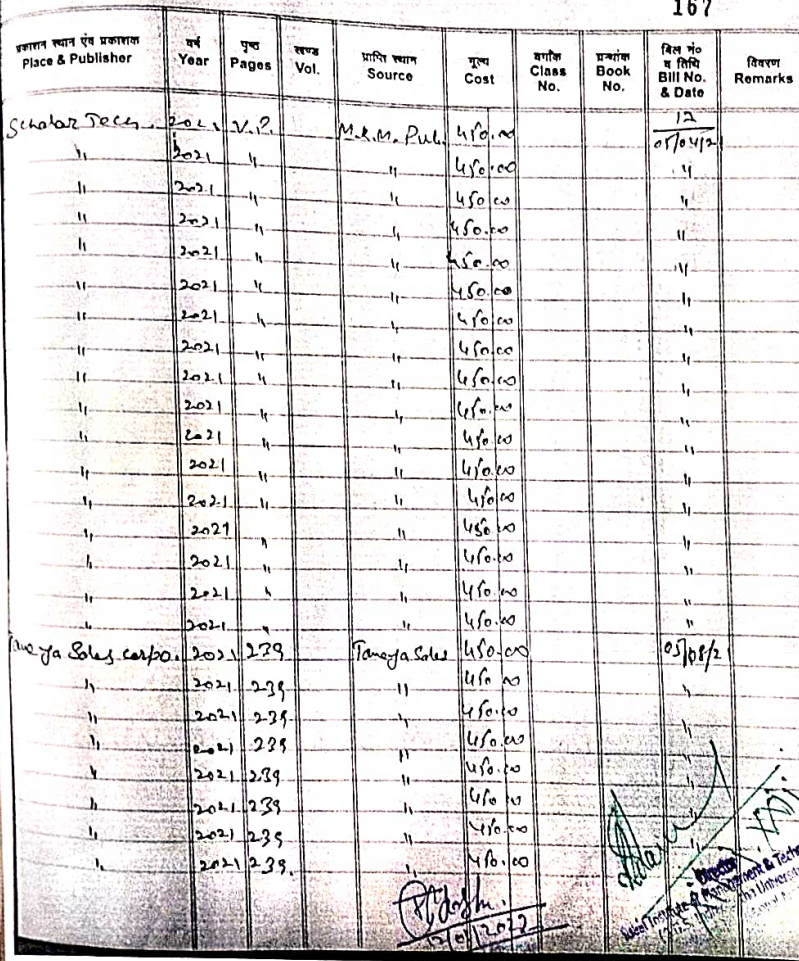 167
प्रकाशन स्थान एंव प्रकाशक Place & Publisher | वर्ष Year | पृष्ठ Pages | खण्ड Vol. | प्राप्ति स्थान Source | मूल्य Cost | वर्गांक Class No. | ग्रन्थांक Book No. | बिल नं० व तिथि Bill No. & Date | विवरण Remarks
Scholar Tech. 2021 V.P. M.R.M. Pub. 450.00 12 05/04/21
" 2021 " " 450.00 "
" 2021 " " 450.00 "
" 2021 " " 450.00 "
" 2021 " " 450.00 "
" 2021 " " 450.00 "
" 2021 " " 450.00 "
" 2021 " " 450.00 "
" 2021 " " 450.00 "
" 2021 " " 450.00 "
" 2021 " " 450.00 "
" 2021 " " 450.00 "
" 2021 " " 450.00 "
" 2021 " " 450.00 "
" 2021 " " 450.00 "
" 2021 " " 450.00 "
" 2021 " " 450.00 "
Tanaya Sales corpo. 2021 239 Tanaya Sales 450.00 05/08/21
" 2021 239 " 450.00 "
" 2021 239 " 450.00 "
" 2021 239 " 450.00 "
" 2021 239 " 450.00 "
" 2021 239 " 450.00 "
" 2021 239 " 450.00 "
" 2021 239. " 450.00 "
Director
Institute of Management & Techn
University